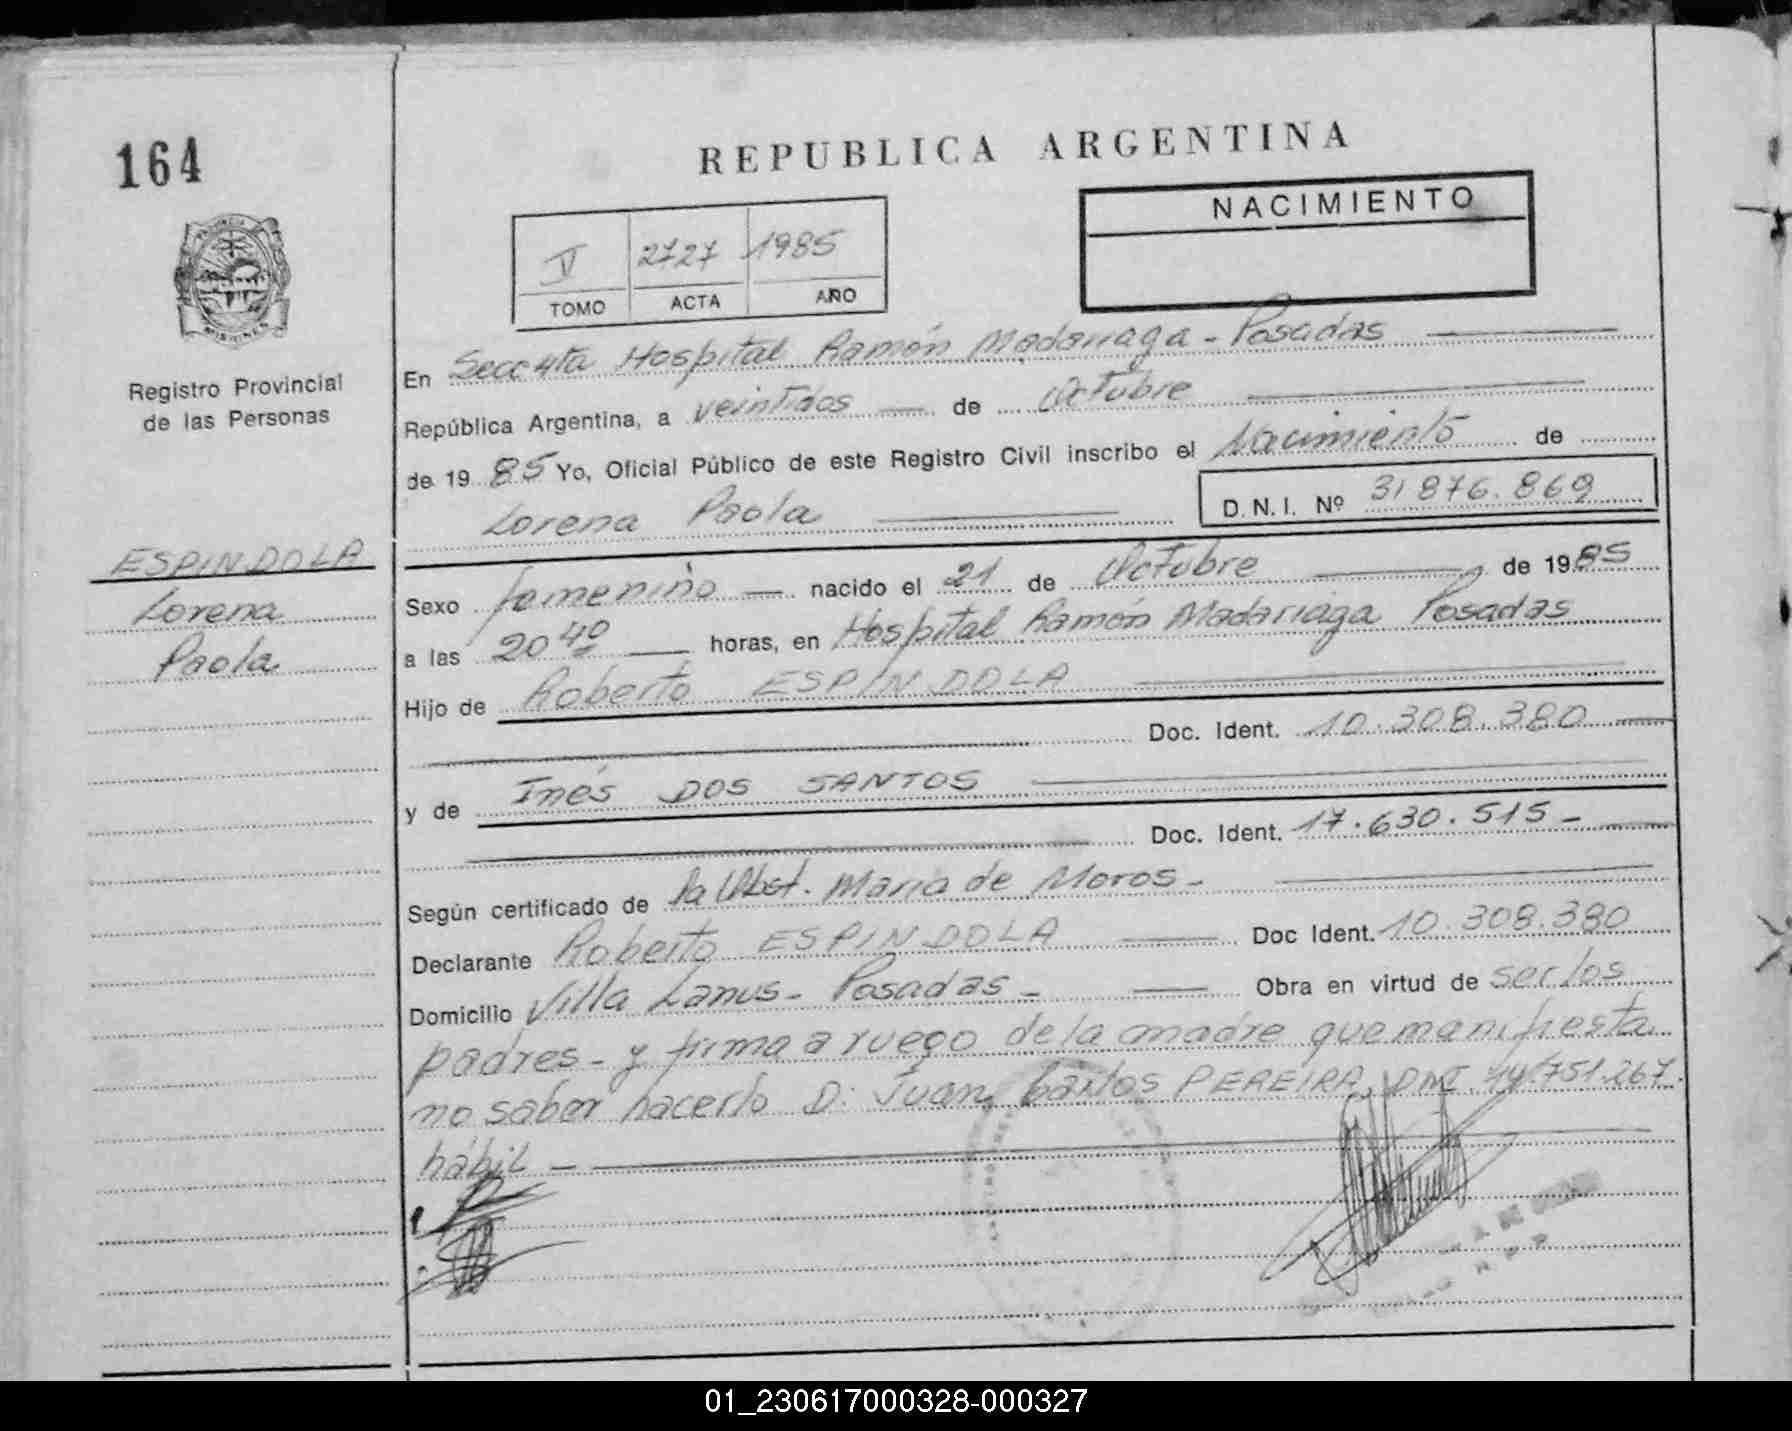 164
REPUBLICA ARGENTINA
NACIMIENTO
V 2727 1985
TOMO ACTA AÑO
MISIONES
Registro Provincial
de las Personas
En Secc 4ta Hospital Ramón Madariaga - Posadas
República Argentina, a veintidos de Octubre
de 19 85 Yo, Oficial Público de este Registro Civil inscribo el Nacimiento de
Lorena Paola D.N.I. Nº 31 876.869
ESPINDOLA
Lorena
Paola
Sexo femenino nacido el 21 de Octubre de 1985
a las 20 40 horas, en Hospital Ramón Madariaga Posadas
Hijo de Roberto ESPINDOLA
Doc. Ident. 10.308.380
y de Inés DOS SANTOS
Doc. Ident. 17.630.515 -
Según certificado de la Obst. Maria de Moros -
Declarante Roberto ESPINDOLA Doc Ident. 10.308.380
Domicilio Villa Lanus - Posadas - Obra en virtud de ser los
padres - y firma a ruego de la madre que manifiesta
no saber hacerlo D. Juan Carlos PEREIRA, DNI 14.751.267.
hábil -
01_230617000328-000327